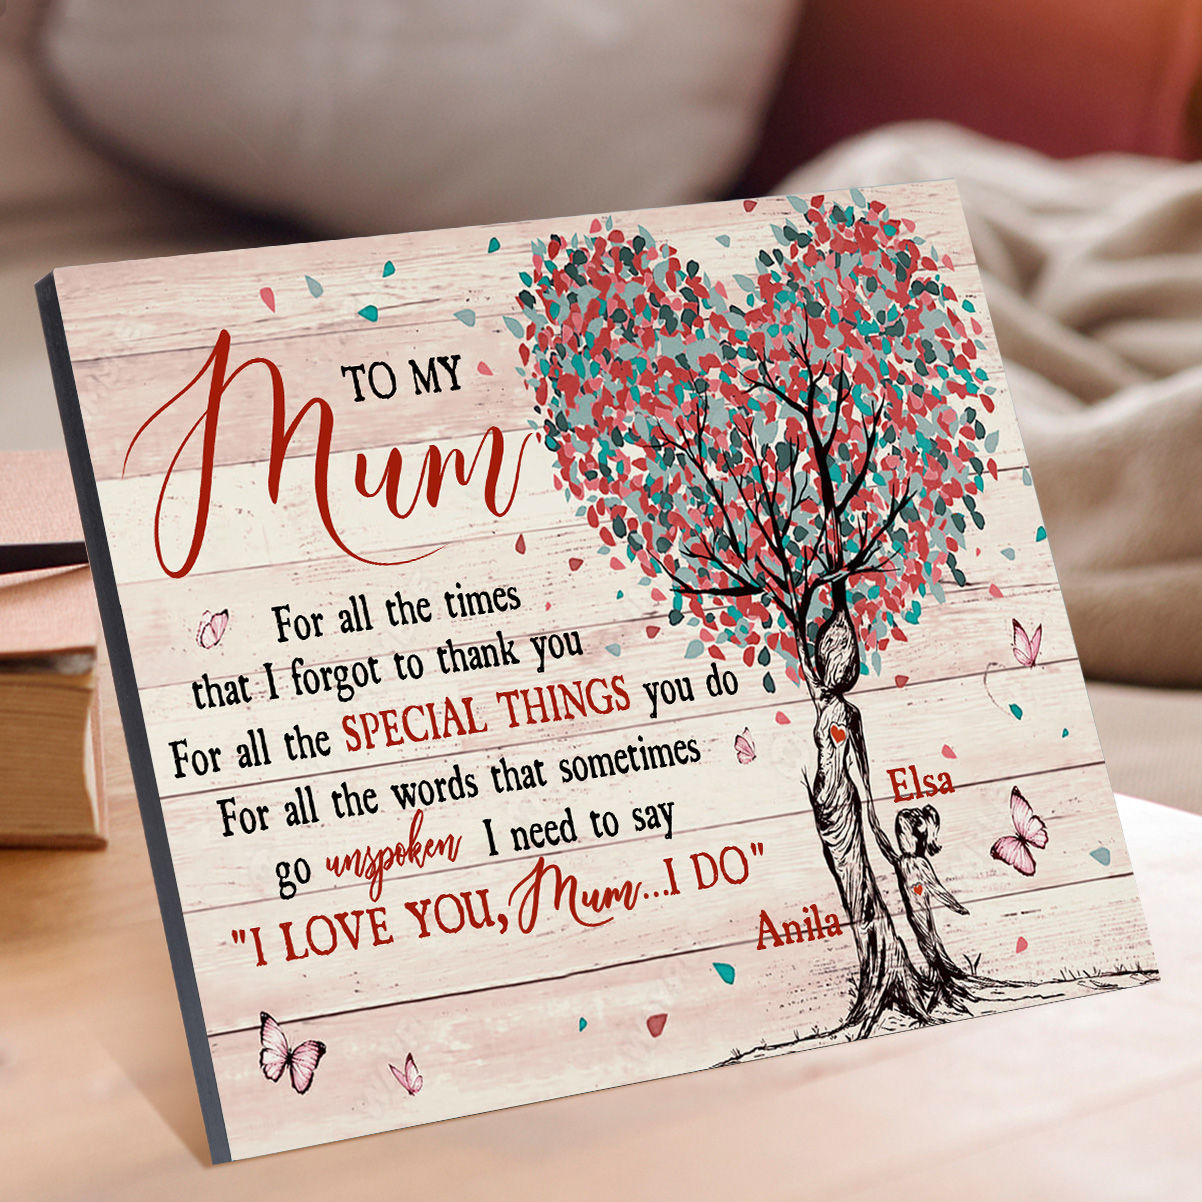 TO MY
Mum
For all the times
that I forgot to thank you
For all the SPECIAL THINGS you do
For all the words that sometimes
go unspoken I need to say
"I LOVE YOU, Mum...I DO"
Elsa
Anila